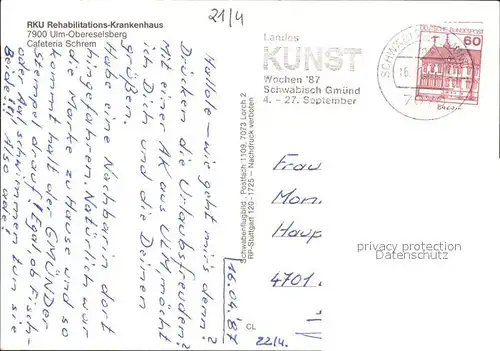 RKU Rehabilitations-Krankenhaus
7900 Ulm-Oberesselsberg
Cafeteria Schrem
21/4
Landes
KUNST
Wochen '87
Schwäbisch Gmünd
4. - 27. September
SCHWÄBISCH GMÜND
DEUTSCHE BUNDESPOST
60
Hallole – wie geht mir's denn?
Drücken die Urlaubsfreuden?
Mit einer AK aus ULM möcht
ich Dich und die Deinen
grüßen.
Habe eine Nachbarin dort
hingefahren. Natürlich war
die Marke zu Hause und so
kommt halt der GMÜNDER
Stempel drauf! Egal ob Fisch-
oder AK schwimmen tun sie
Beide!!! Also ade!
16.04.'87
Schwabenflugbild · Postfach 1109, 7073 Lorch 2
RP-Stuttgart 120 - 1725 – Nachdruck verboten
CL
22/4.
Frau
Mon
Haup
4701
privacy protection
Ansichtskarten-Center.de